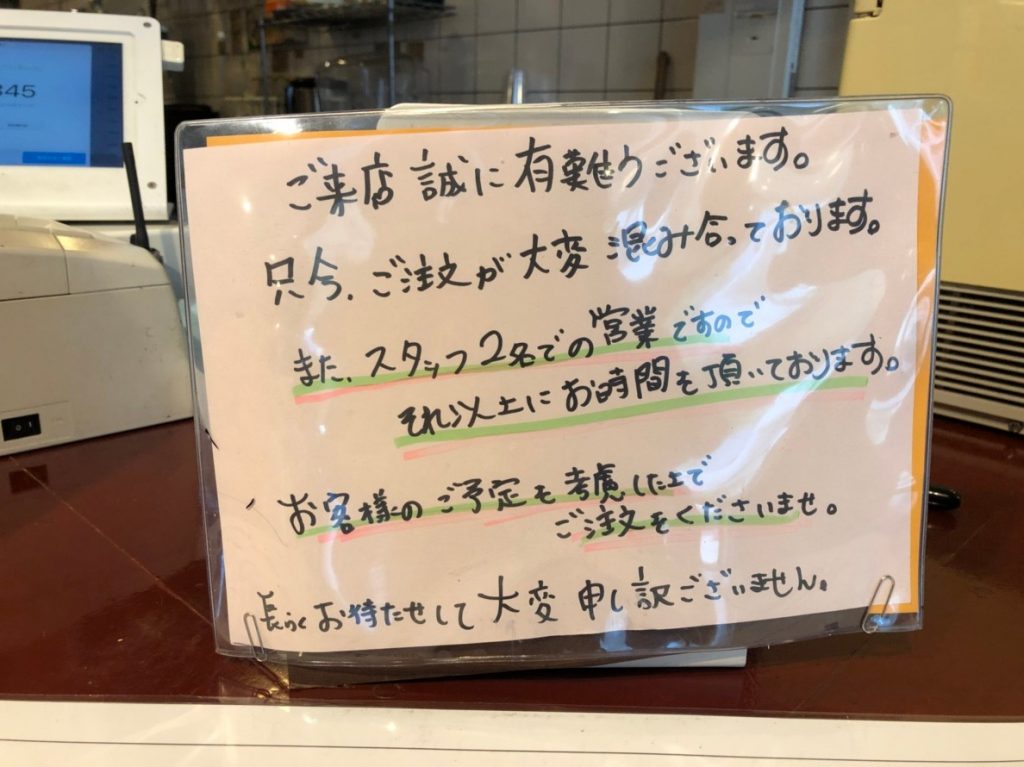 345
ご来店 誠に有難うございます。
只今、ご注文が大変混み合っております。
また、スタッフ2名での営業ですので
それ以上にお時間を頂いております。
お客様のご予定も考慮した上で
ご注文をくださいませ。
長らくお待たせして大変申し訳ございません。